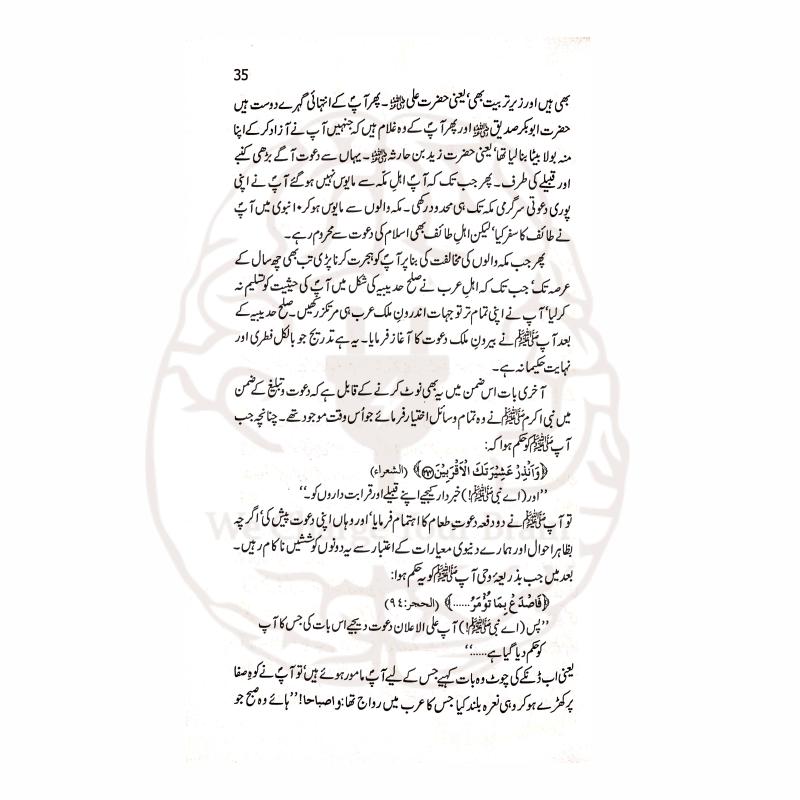 35
بھی ہیں اور زیر تربیت بھی‘ یعنی حضرت علی ؓ۔ پھر آپؐ کے انتہائی گہرے دوست ہیں
حضرت ابوبکر صدیق ؓ اور پھر آپؐ کے وہ غلام ہیں کہ جنہیں آپ نے آزاد کر کے اپنا
منہ بولا بیٹا بنا لیا تھا‘ یعنی حضرت زید بن حارثہ ؓ۔ یہاں سے دعوت آگے بڑھی کنبے
اور قبیلے کی طرف۔ پھر جب تک کہ آپؐ اہلِ مکّہ سے مایوس نہیں ہو گئے آپؐ نے اپنی
پوری دعوتی سرگرمی مکہ تک ہی محدود رکھی۔ مکہ والوں سے مایوس ہو کر ۱۰ نبوی میں آپؐ
نے طائف کا سفر کیا‘ لیکن اہلِ طائف بھی اسلام کی دعوت سے محروم رہے۔
پھر جب مکہ والوں کی مخالفت کی بنا پر آپؐ کو ہجرت کرنا پڑی تب بھی چھ سال کے
عرصہ تک‘ جب تک کہ اہلِ عرب نے صلح حدیبیہ کی شکل میں آپؐ کی حیثیت کو تسلیم نہ
کر لیا‘ آپ نے اپنی تمام تر توجہات اندرونِ ملک عرب ہی مرتکز رکھیں۔ صلح حدیبیہ کے
بعد آپ ﷺ نے بیرونِ ملک دعوت کا آغاز فرمایا۔ یہ ہے تدریج جو بالکل فطری اور
نہایت حکیمانہ ہے۔
آخری بات اس ضمن میں یہ بھی نوٹ کرنے کے قابل ہے کہ دعوت و تبلیغ کے ضمن
میں نبی اکرم ﷺ نے وہ تمام وسائل اختیار فرمائے جو اُس وقت موجود تھے۔ چنانچہ جب
آپ ﷺ کو حکم ہوا کہ:
﴿وَاَنْذِرْ عَشِيْرَتَكَ الْاَقْرَبِيْنَ ﴾ (الشعراء)
’’اور (اے نبی ﷺ!) خبردار کیجیے اپنے قبیلے اور قرابت داروں کو۔‘‘
تو آپ ﷺ نے دو دفعہ دعوتِ طعام کا اہتمام فرمایا‘ اور وہاں اپنی دعوت پیش کی‘ اگرچہ
بظاہر احوال اور ہمارے دنیوی معیارات کے اعتبار سے یہ دونوں کوششیں ناکام رہیں۔
بعد میں جب بذریعۂ وحی آپ ﷺ کو یہ حکم ہوا:
﴿فَاصْدَعْ بِمَا تُؤْمَرُ ......﴾ (الحجر:٩٤)
’’پس (اے نبی ﷺ!) آپ علی الاعلان دعوت دیجیے اس بات کی جس کا آپ
کو حکم دیا گیا ہے......‘‘
یعنی اب ڈنکے کی چوٹ وہ بات کہیے جس کے لیے آپؐ مامور ہوئے ہیں‘ تو آپؐ نے کوہِ صفا
پر کھڑے ہو کر وہی نعرہ بلند کیا جس کا عرب میں رواج تھا: واصباحا! ’’ہائے وہ صبح جو